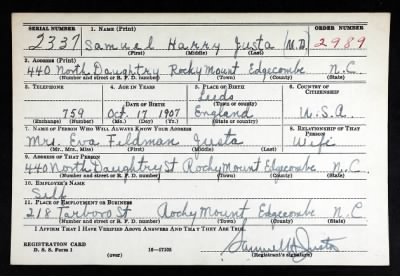 SERIAL NUMBER 1. NAME (Print) ORDER NUMBER
2337 Samuel Harry Justa (M.D.) 2989
(First) (Middle) (Last)
2. ADDRESS (Print)
440 North Daughtry Rocky Mount Edgecombe N.C.
(Number and street or R. F. D. number) (Town) (County) (State)
3. TELEPHONE 4. AGE IN YEARS 5. PLACE OF BIRTH 6. COUNTRY OF CITIZENSHIP
Leeds
DATE OF BIRTH (Town or county)
759 Oct. 17 1907 England U.S.A.
(Exchange) (Number) (Mo.) (Day) (Yr.) (State or country)
7. NAME OF PERSON WHO WILL ALWAYS KNOW YOUR ADDRESS 8. RELATIONSHIP OF THAT PERSON
Mrs. Eva Feldman Justa Wife
(Mr., Mrs., Miss) (First) (Middle) (Last)
9. ADDRESS OF THAT PERSON
440 North Daughtry St Rocky Mount Edgecombe N.C.
(Number and street or R. F. D. number) (Town) (County) (State)
10. EMPLOYER'S NAME
Self
11. PLACE OF EMPLOYMENT OR BUSINESS
218 Tarboro St Rocky Mount Edgecombe N.C.
(Number and street or R. F. D. number) (Town) (County) (State)
I AFFIRM THAT I HAVE VERIFIED ABOVE ANSWERS AND THAT THEY ARE TRUE.
REGISTRATION CARD
D. S. S. Form 1 16—17105
(over) (Registrant's signature)
Samuel H Justa